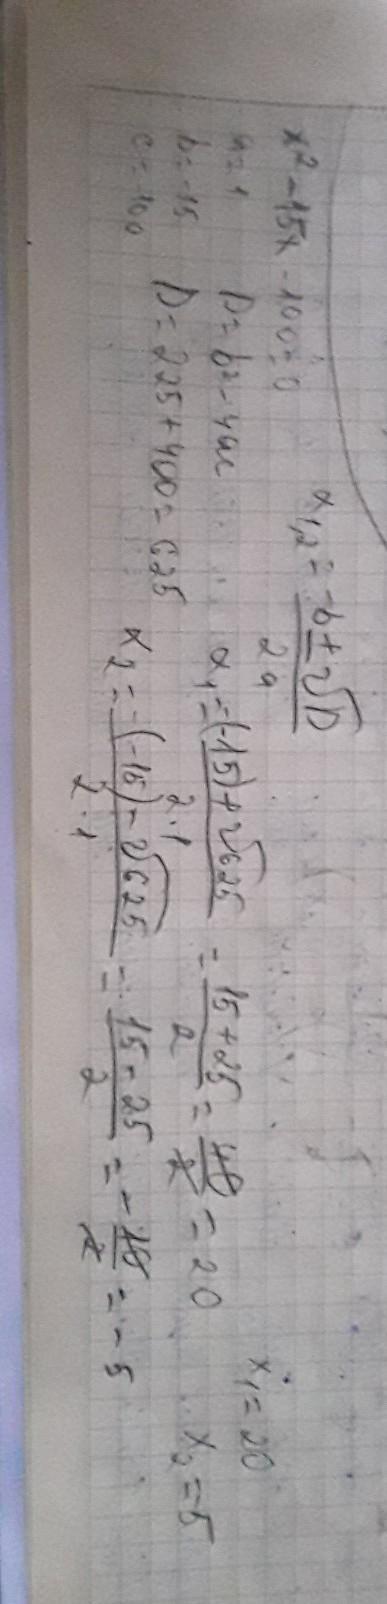 x² - 15x - 100 = 0
a = 1
b = -15
c = -100
D = b² - 4ac
D = 225 + 400 = 625
x₁,₂ = (-b ± √D) / 2a
x₁ = (-(-15) + √625) / (2·1) = (15 + 25) / 2 = 40/2 = 20
x₂ = (-(-15) - √625) / (2·1) = (15 - 25) / 2 = -10/2 = -5
x₁ = 20
x₂ = -5